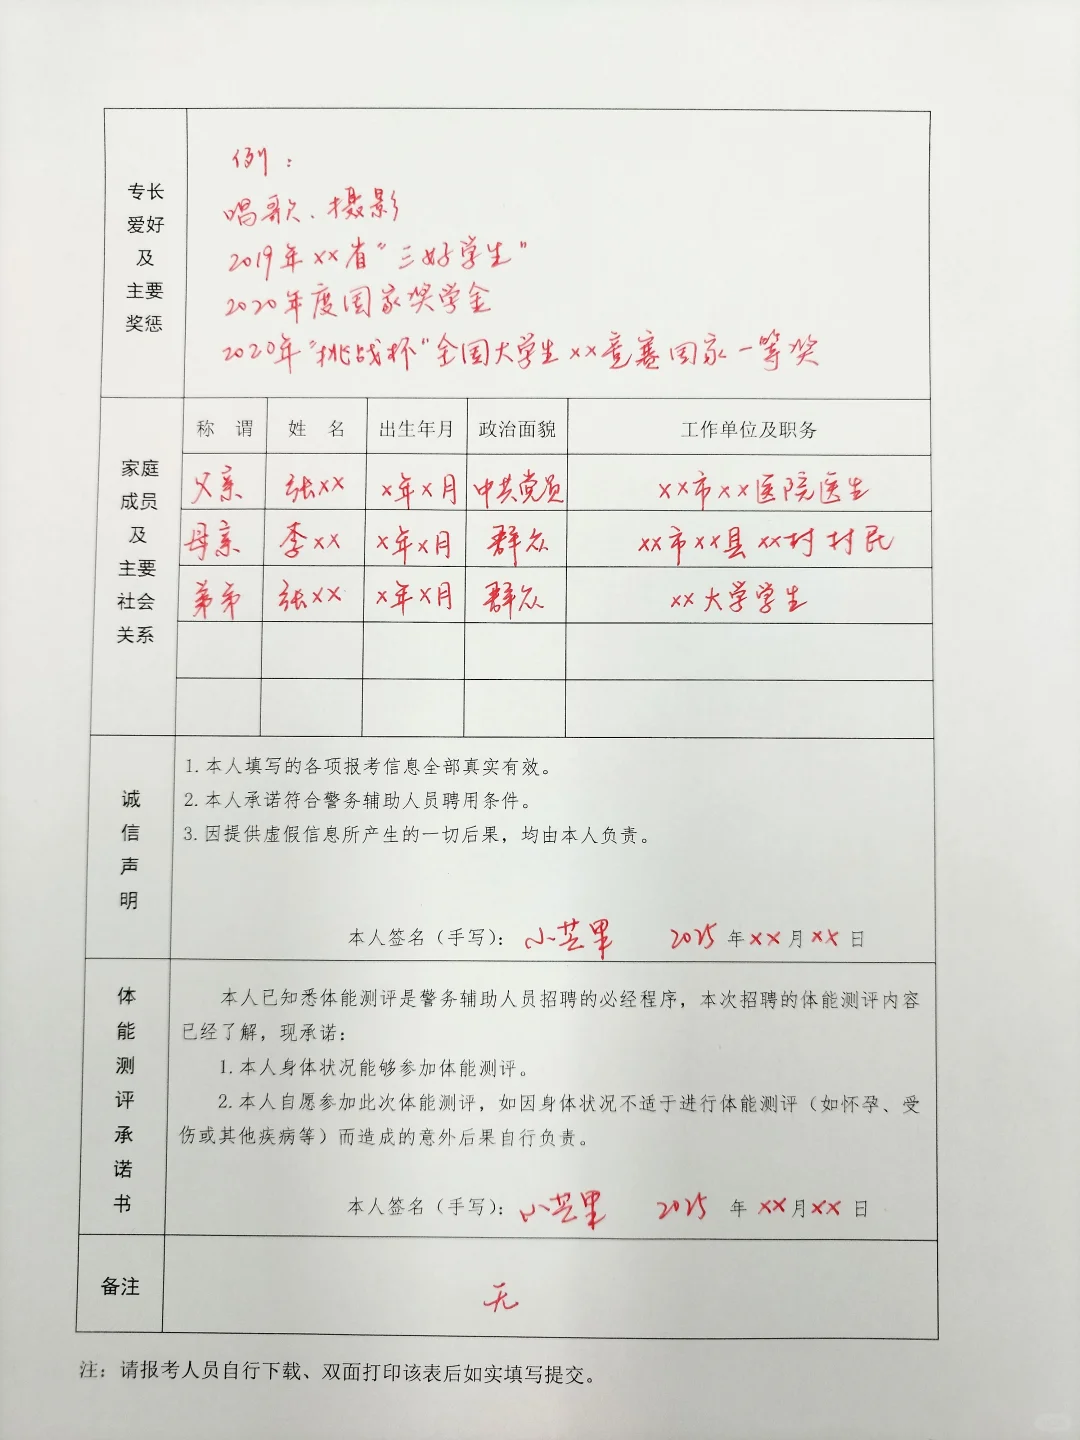 专长
爱好
及
主要
奖惩
例：
唱歌、摄影
2019年××省“三好学生”
2020年度国家奖学金
2020年“挑战杯”全国大学生××竞赛国家一等奖
家庭
成员
及
主要
社会
关系
称 谓 姓 名 出生年月 政治面貌 工作单位及职务
父亲 张×× ×年×月 中共党员 ××市××医院医生
母亲 李×× ×年×月 群众 ××市××县××村村民
弟弟 张×× ×年×月 群众 ××大学学生
诚
信
声
明
1.本人填写的各项报考信息全部真实有效。
2.本人承诺符合警务辅助人员聘用条件。
3.因提供虚假信息所产生的一切后果，均由本人负责。
本人签名（手写）：小芒果 2025年××月××日
体
能
测
评
承
诺
书
本人已知悉体能测评是警务辅助人员招聘的必经程序，本次招聘的体能测评内容
已经了解，现承诺：
1.本人身体状况能够参加体能测评。
2.本人自愿参加此次体能测评，如因身体状况不适于进行体能测评（如怀孕、受
伤或其他疾病等）而造成的意外后果自行负责。
本人签名（手写）：小芒果 2025年××月××日
备注
无
注：请报考人员自行下载、双面打印该表后如实填写提交。